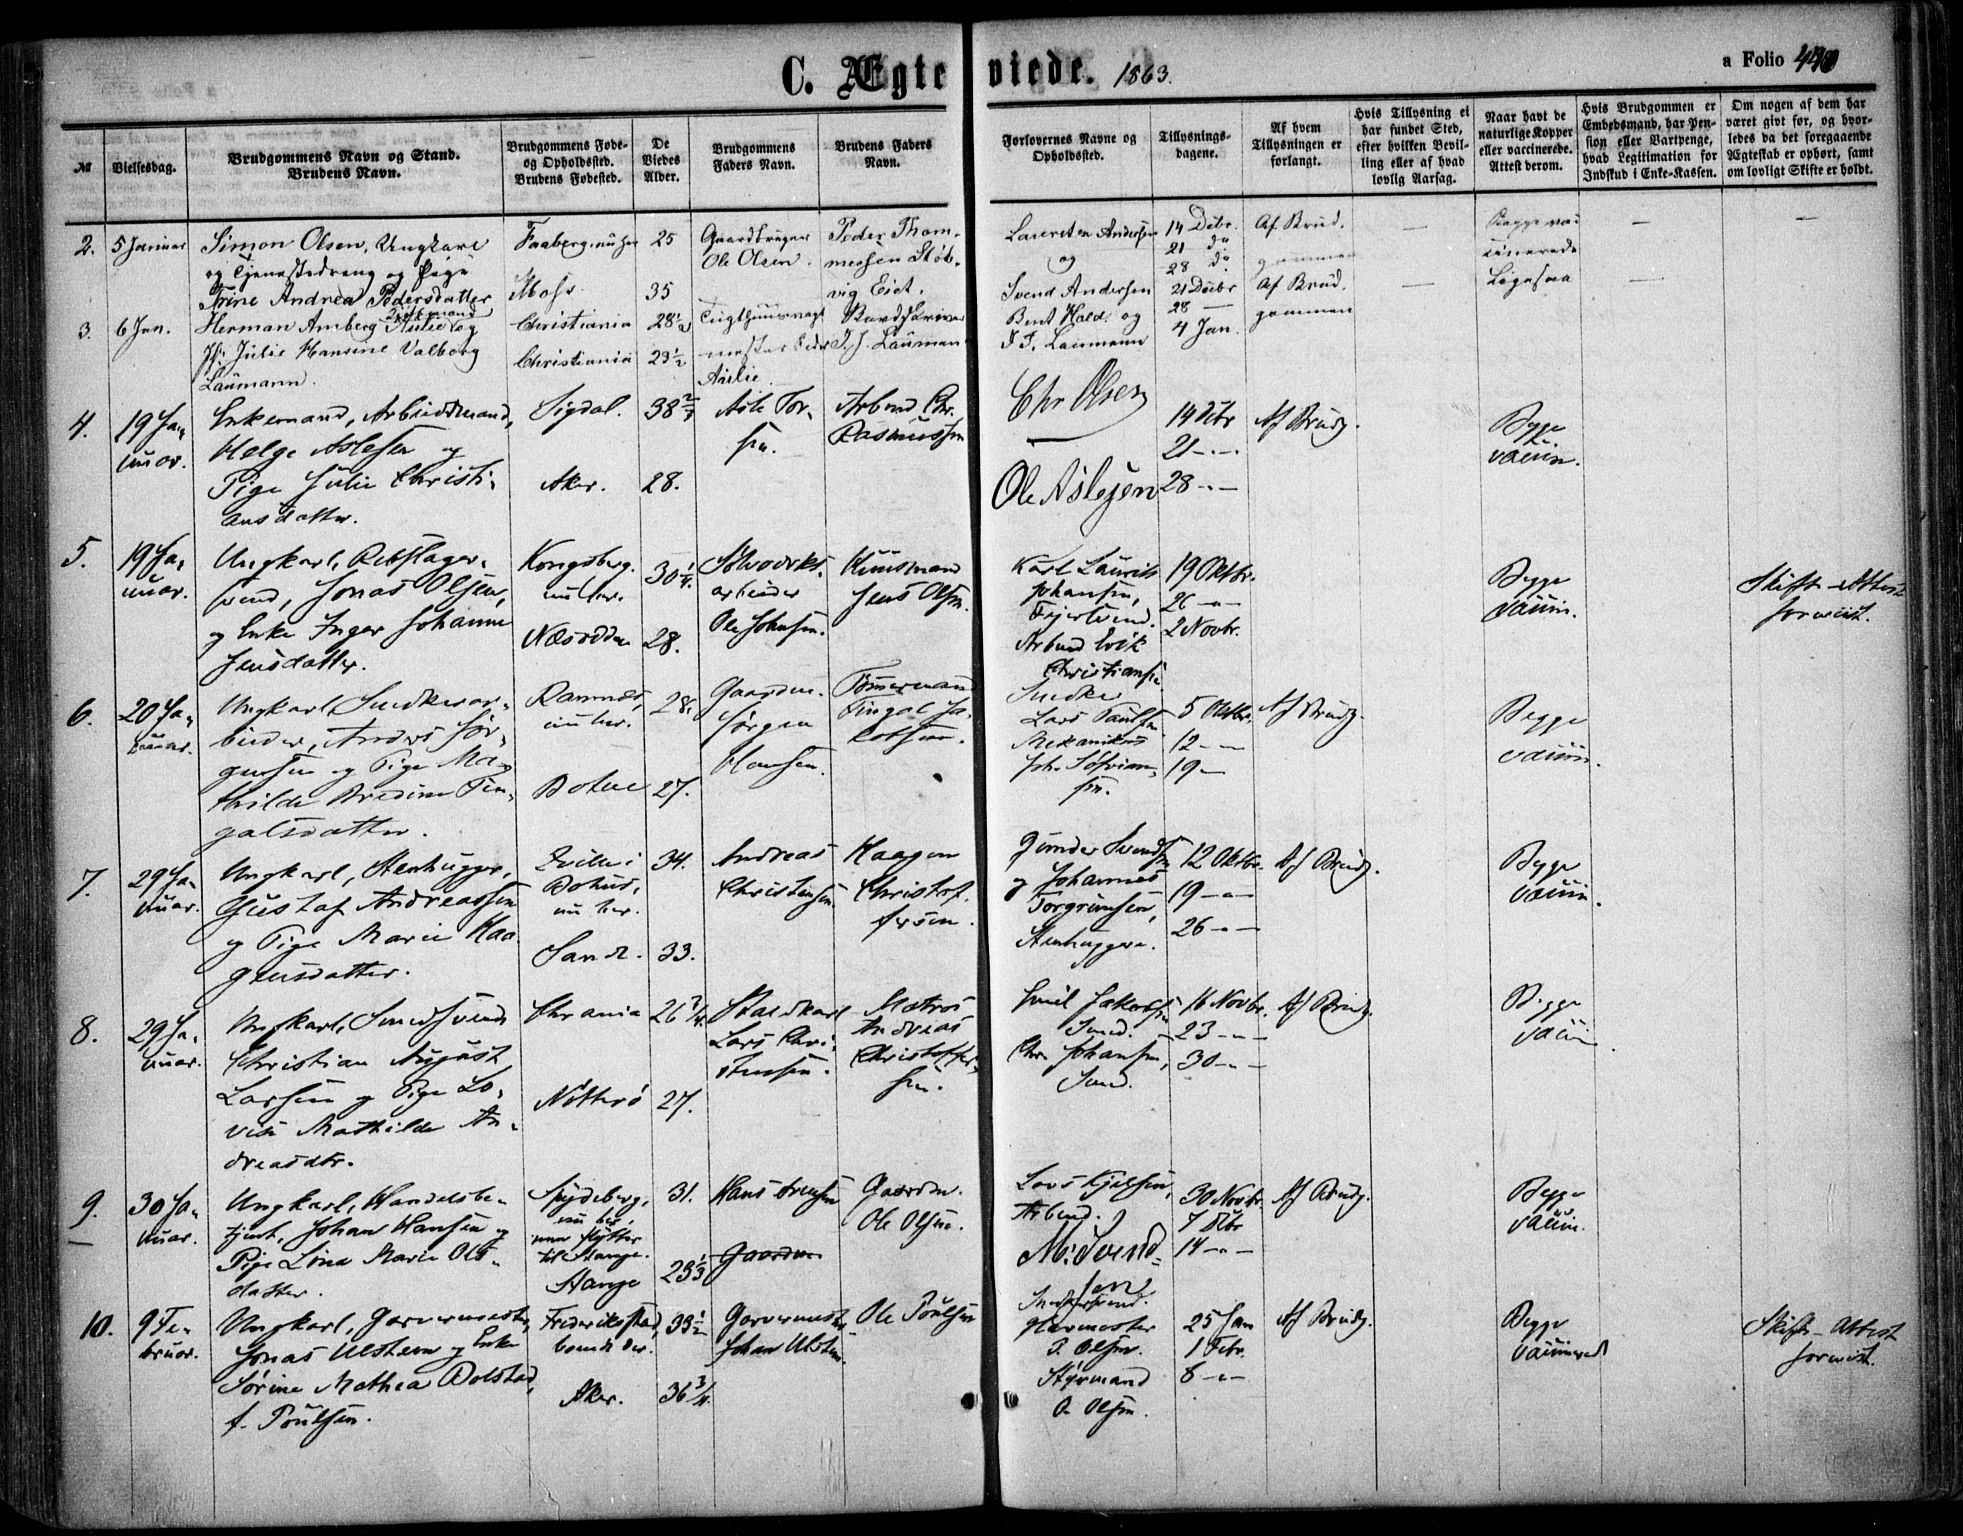 C. Ægteviede. 1863.
a Folio 440
№
Vielsesdag.
Brudgommens Navn og Stand.
Brudens Navn.
Brudgommens Føde-
og Opholdssted.
Brudens Fødested.
De
Viedes
Alder.
Brudgommens
Faders Navn.
Brudens Faders
Navn.
Forlovernes Navne og
Opholdssted.
Tillysnings-
dagene.
Af hvem
Tillysningen er
forlangt.
Hvis Tillysning ei
har fundet Sted,
efter hvilken Bevil-
ling eller af hvad
lovlig Aarsag.
Naar havt de
naturlige Kopper
eller vaccinerede.
Attest derom.
Hvis Brudgommen er
Embedsmand, har Pen-
sion eller Vartpenge,
hvad Legitimation for
Indskud i Enke-Kassen.
Om nogen af dem har
været givt før, og hvor-
ledes da det foregaaende
Ægteskab er ophørt, samt
om lovligt Skifte er holdt.
2. 5 Januar
Simon Olsen, Ungkarl
og Tjenestedreng og Pige
Trine Andrea Pedersdatter
Faaberg
Moss
25
35
Gaardbruger
Ole Olsen.
Peder Thom-
messen
vig Eiet.
Andersen
og
Svend Andersen
14 Debr.
21 do
28 do
Af Brud-
gommen
Begge vac-
cinerede
3. 6 Jan.
Herman Amberg Aulie og
Julie Hansine Valborg
Laumann.
Christiania
Christiania
28½
23½
Aulie.
Laumann
Bent Hald og
Laumann
21 Debr
28 —
4 Jan.
Af Brud-
gommen
Ligesaa
4. 19 Ja-
nuar.
Enkemand, Arbeidsmand,
Helge Aslesen og
Pige Julie Christi-
ansdatter.
Sigdal.
Aker.
38
28.
Asle Tor-
sen.
Arbmd Chr.
Rasmussen
Chr Olsen
Ole Aslesen
14 Debr
21 - -
28 - -
Af Brudg.
Begge
vaccin.
5. 19 Ja-
nuar.
Ungkarl, Rebslager-
svend, Jonas Olsen,
og Enke Inger Johanne
Jensdatter.
Kongsberg.
nu her.
Næsodden
30¼.
28.
Sølvverks-
arbeider
Ole Johnsen.
Huusmand
Jens Olsen.
Karl Laurits
Johansen,
Arbmd Erik
Christiansen
19 Oktbr.
26 - -
2 Novbr.
Begge
vaccin.
Skifte-Attest
forevist.
6. 20 Ja-
nuar.
Ungkarl, Snedkerar-
beider, Anders Jør-
gensen og Pige Ma-
thilde Bredine Fin-
galsdatter.
Ramnæs,
nu her.
Botne
28.
27.
Gaardm.
Jørgen
Hansen.
Tømmermand
Fingal Ja-
kobsen.
Snedker
Lars Paulsen
Mekanikus
5 Oktbr.
12 - -
19 -
Af Brudg.
Begge
vaccin.
7. 29 Ja-
nuar.
Ungkarl, Stenhugger,
Gustaf Andreassen
og Pige Marie Haa-
gensdatter.
Bohus,
nu her.
Sande.
34.
33.
Andreas
Christensen.
Haagen
Christof-
fersen.
Gunder Svendsen
og Johannes
Torgrimsen,
Stenhuggere.
12 Oktbr.
19 - -
26 - -
Af Brudg.
Begge
vaccin.
8. 29 Ja-
nuar.
Ungkarl, Smedsvend
Christian August
Larsen og Pige Lo-
vise Mathilde An-
dreasdtr.
Chrania
Nøtterø
26¾
27.
Staldkarl
Lars Chri-
stensen.
Matros
Andreas
Christoffer-
sen.
Emil Jakobsen
Smed.
Chr. Johansen,
Smed.
16 Novbr.
23 - -
30 - -
Af Brudg.
Begge
vaccin.
9. 30 Ja-
nuar.
Ungkarl, Handelsbe-
tjent, Johan Hansen og
Pige Lina Marie Ols-
datter.
Spydeberg,
nu her,
men flytter
til Stange.
Stange
31.
23⅓
Hans Iversen
Gaardm
Gaardm.
Ole Olsen.
Lars Kjelsen,
Arbmd.
M. Svend-
sen
Snedkersvend.
30 Novbr.
7 Debr
14 - -
Af Brudg.
Begge
vaccin.
10. 9 Fe-
bruar.
Ungkarl, Garvermester,
Jonas Ulsteen og Enke
Sørine Mathea Bolstad,
f. Poulsen.
Frederikstad,
boende der.
Aker.
33½
36¾.
Garvermester
Johan Ulsteen.
Ole Poulsen
Glarmester
O. Olsen.
Styrmand
O. Olsen.
25 Jan
1 Febr.
8 - -
Af Brudg.
Begge
vaccinered
Skifte-Attest
forevist.